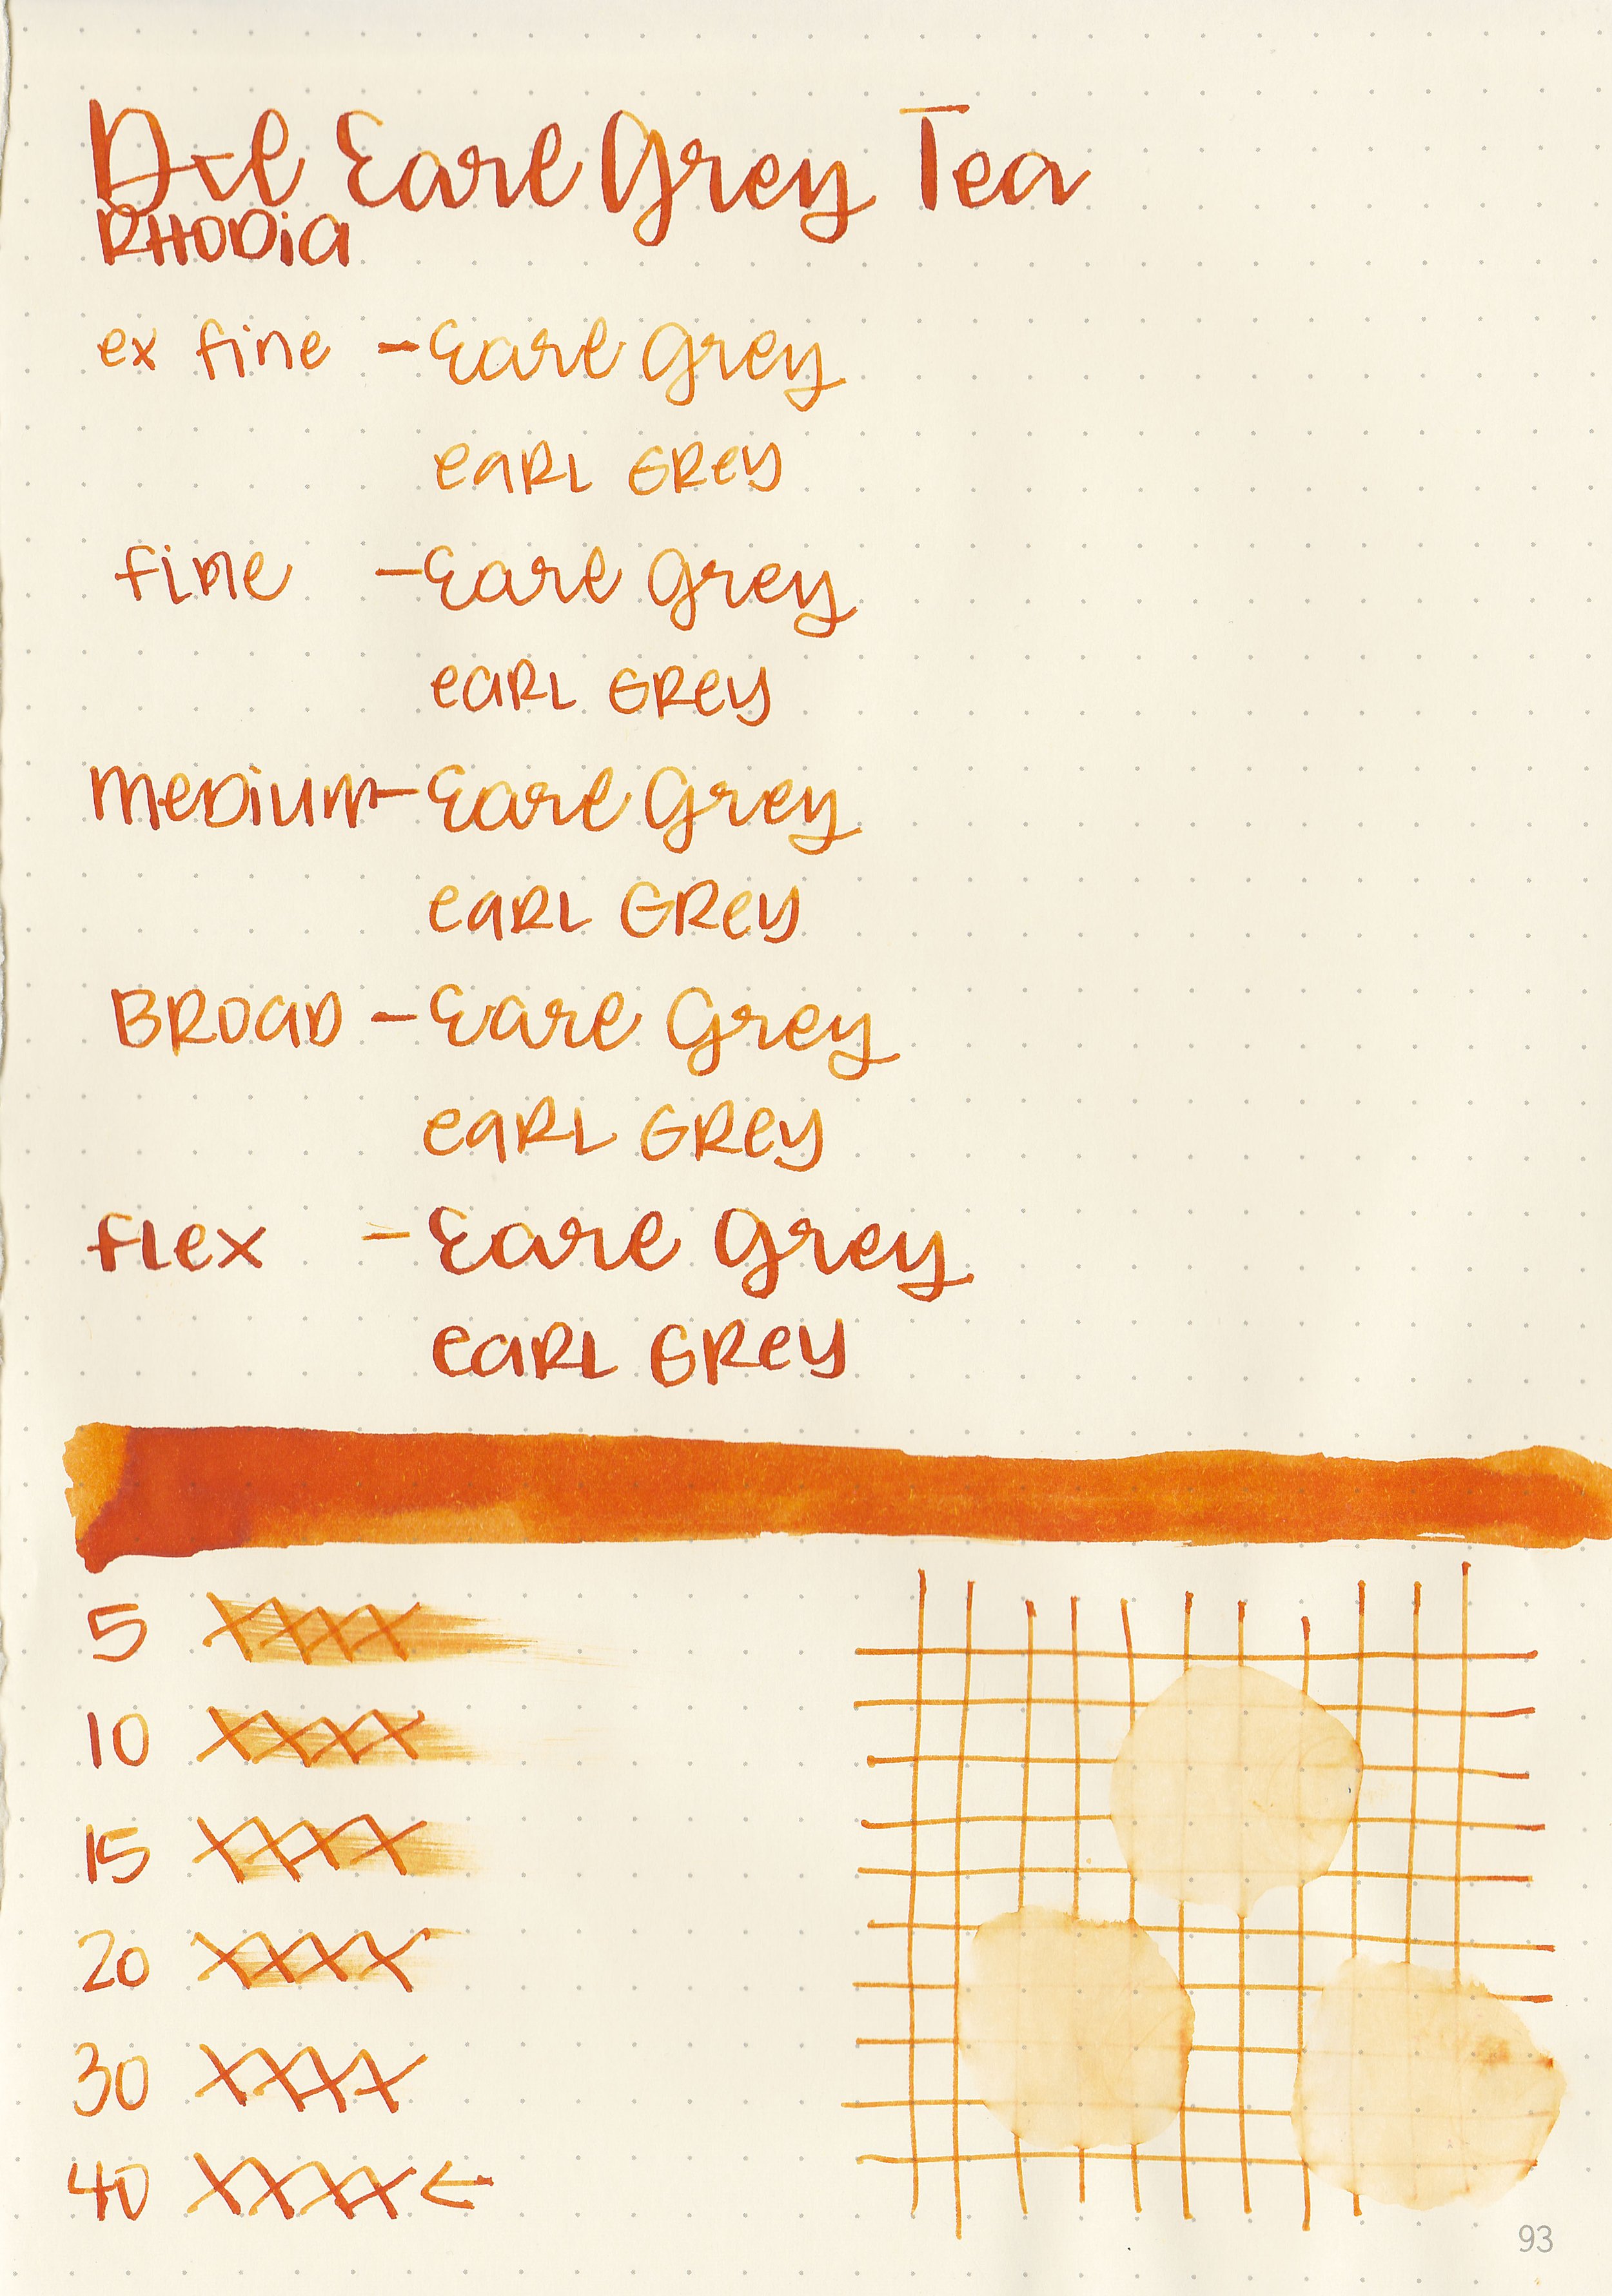 Dvl Earl Grey Tea
RHODia
ex fine - Earl Grey
eaRL GRey
fine - Earl Grey
eaRL GRey
meDium - Earl Grey
eaRL GRey
BROaD - Earl Grey
eaRL GRey
fLex - Earl Grey
eaRL GRey
5 XXXX
10 XXXX
15 XXXX
20 XXXX
30 XXXX
40 XXXX ←
93